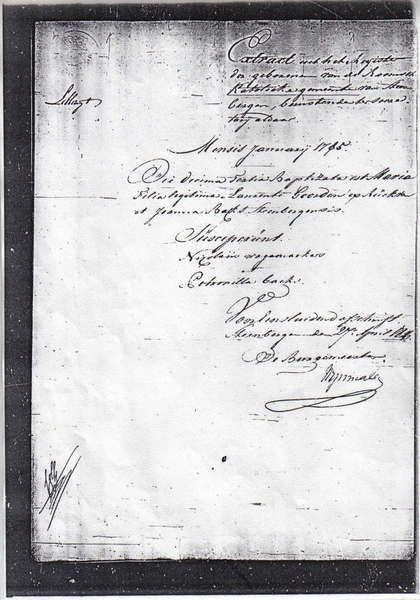 Extract uit het Register
der geborenen van de Roomsch
Katolyke gemeente van Steen
bergen, berustende ter secre
tary aldaar.
Mensis Januarij 1795.
Die decima tertia Baptizata est Maria
Filia legitima Laurentii
et Joanna Backx Steenbergensis.
Susceperunt.
Nicolaus wagemakers
Petronilla backx.
Voor Eensluidend afschrift
Steenbergen den 27 April
De Burgemeester